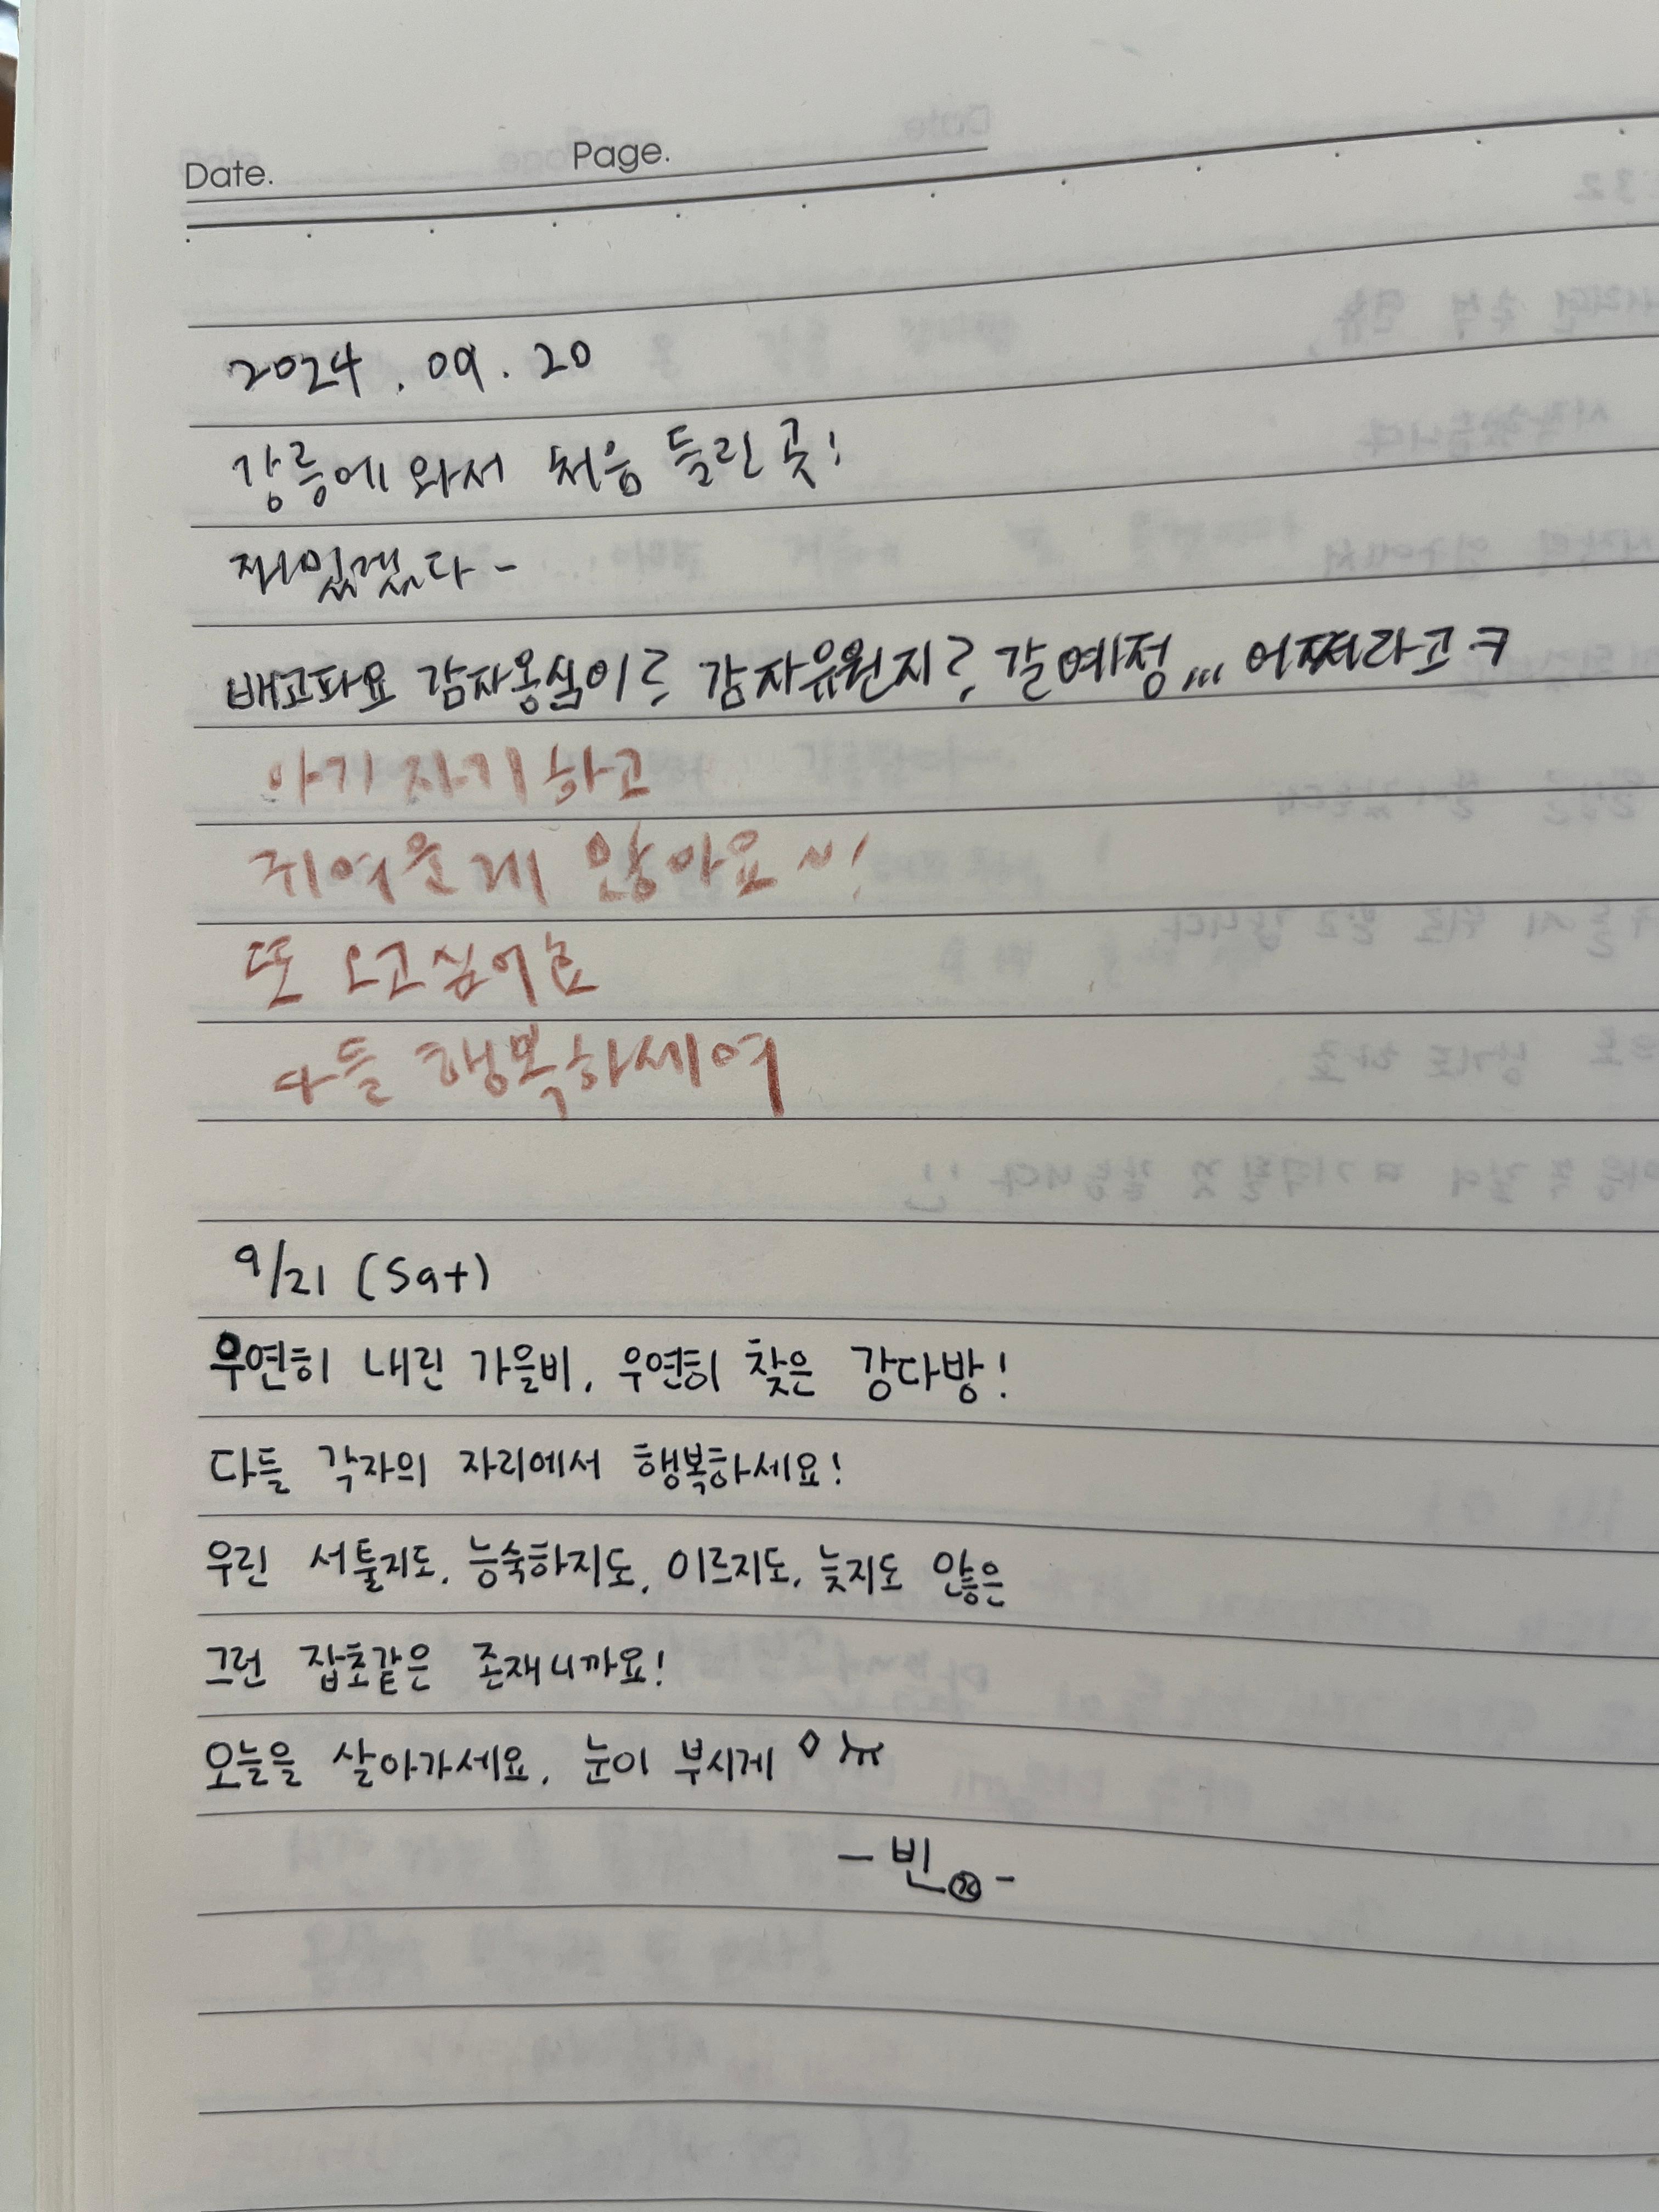 Date. Page.
2024.09.20
강릉에 와서 처음 들린 곳!
재밌겠다-
배고파요 감자옹심이ㄹ 감자유원지ㄹ 갈예정,,, 어쩌라고ㅋ
아기자기하고
귀여운게 많아요~!
또 오고싶어효
다들 행복하세여
9/21 (Sat)
우연히 내린 가을비, 우연히 찾은 강다방!
다들 각자의 자리에서 행복하세요!
우린 서툴지도, 능숙하지도, 이르지도, 늦지도 않은
그런 잡초같은 존재니까요!
오늘을 살아가세요, 눈이 부시게
-빈-